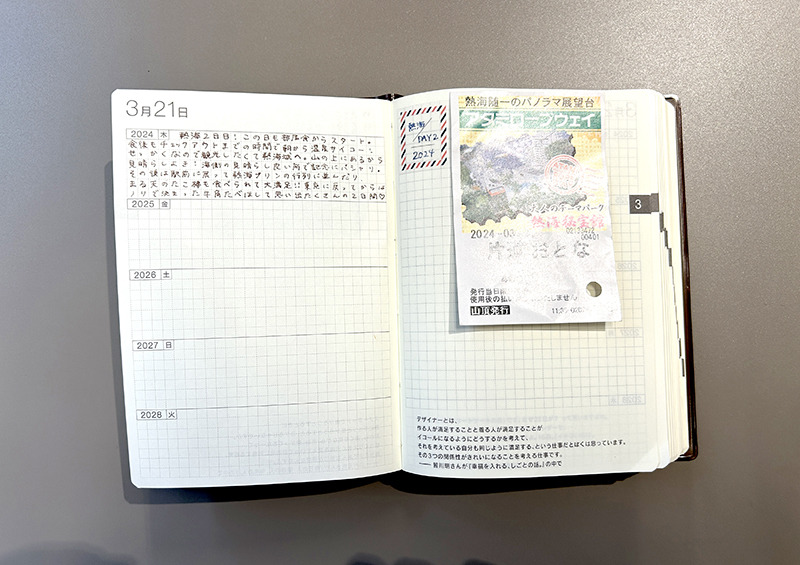 3月21日
2024 木 熱海2日目!この日も部屋食からスタート。
食後もチェックアウトまでの時間で朝から温泉サイコー!
せっかくなので観光したくて熱海城へ。山の上にあるから
見晴らしよき!海側の見晴らし良い所で記念にパシャリ。
その後は駅前に戻って熱海プリンの行列に並んだり、
まる天のたこ棒も食べられて大満足!東京に戻ってからは
ノリで決まった牛角たべほして思い出たくさんの2日間♡
2025 金
2026 土
2027 日
2028 火
熱海
DAY2
2024
熱海随一のパノラマ展望台
アタミロープウェイ
熱海秘宝館
2024-03
00401
片道 おとな
発行当日
使用後の払い しません
山頂発行
3
デザイナーとは、
作る人が満足することと着る人が満足することが
イコールになるようにどうするかを考えて、
それを考えている自分も同じように満足する、という仕事だとぼくは思っています。
その3つの関係性がきれいになることを考える仕事です。
—— 皆川明さんが『幸福を入れる、しごとの話。』の中で